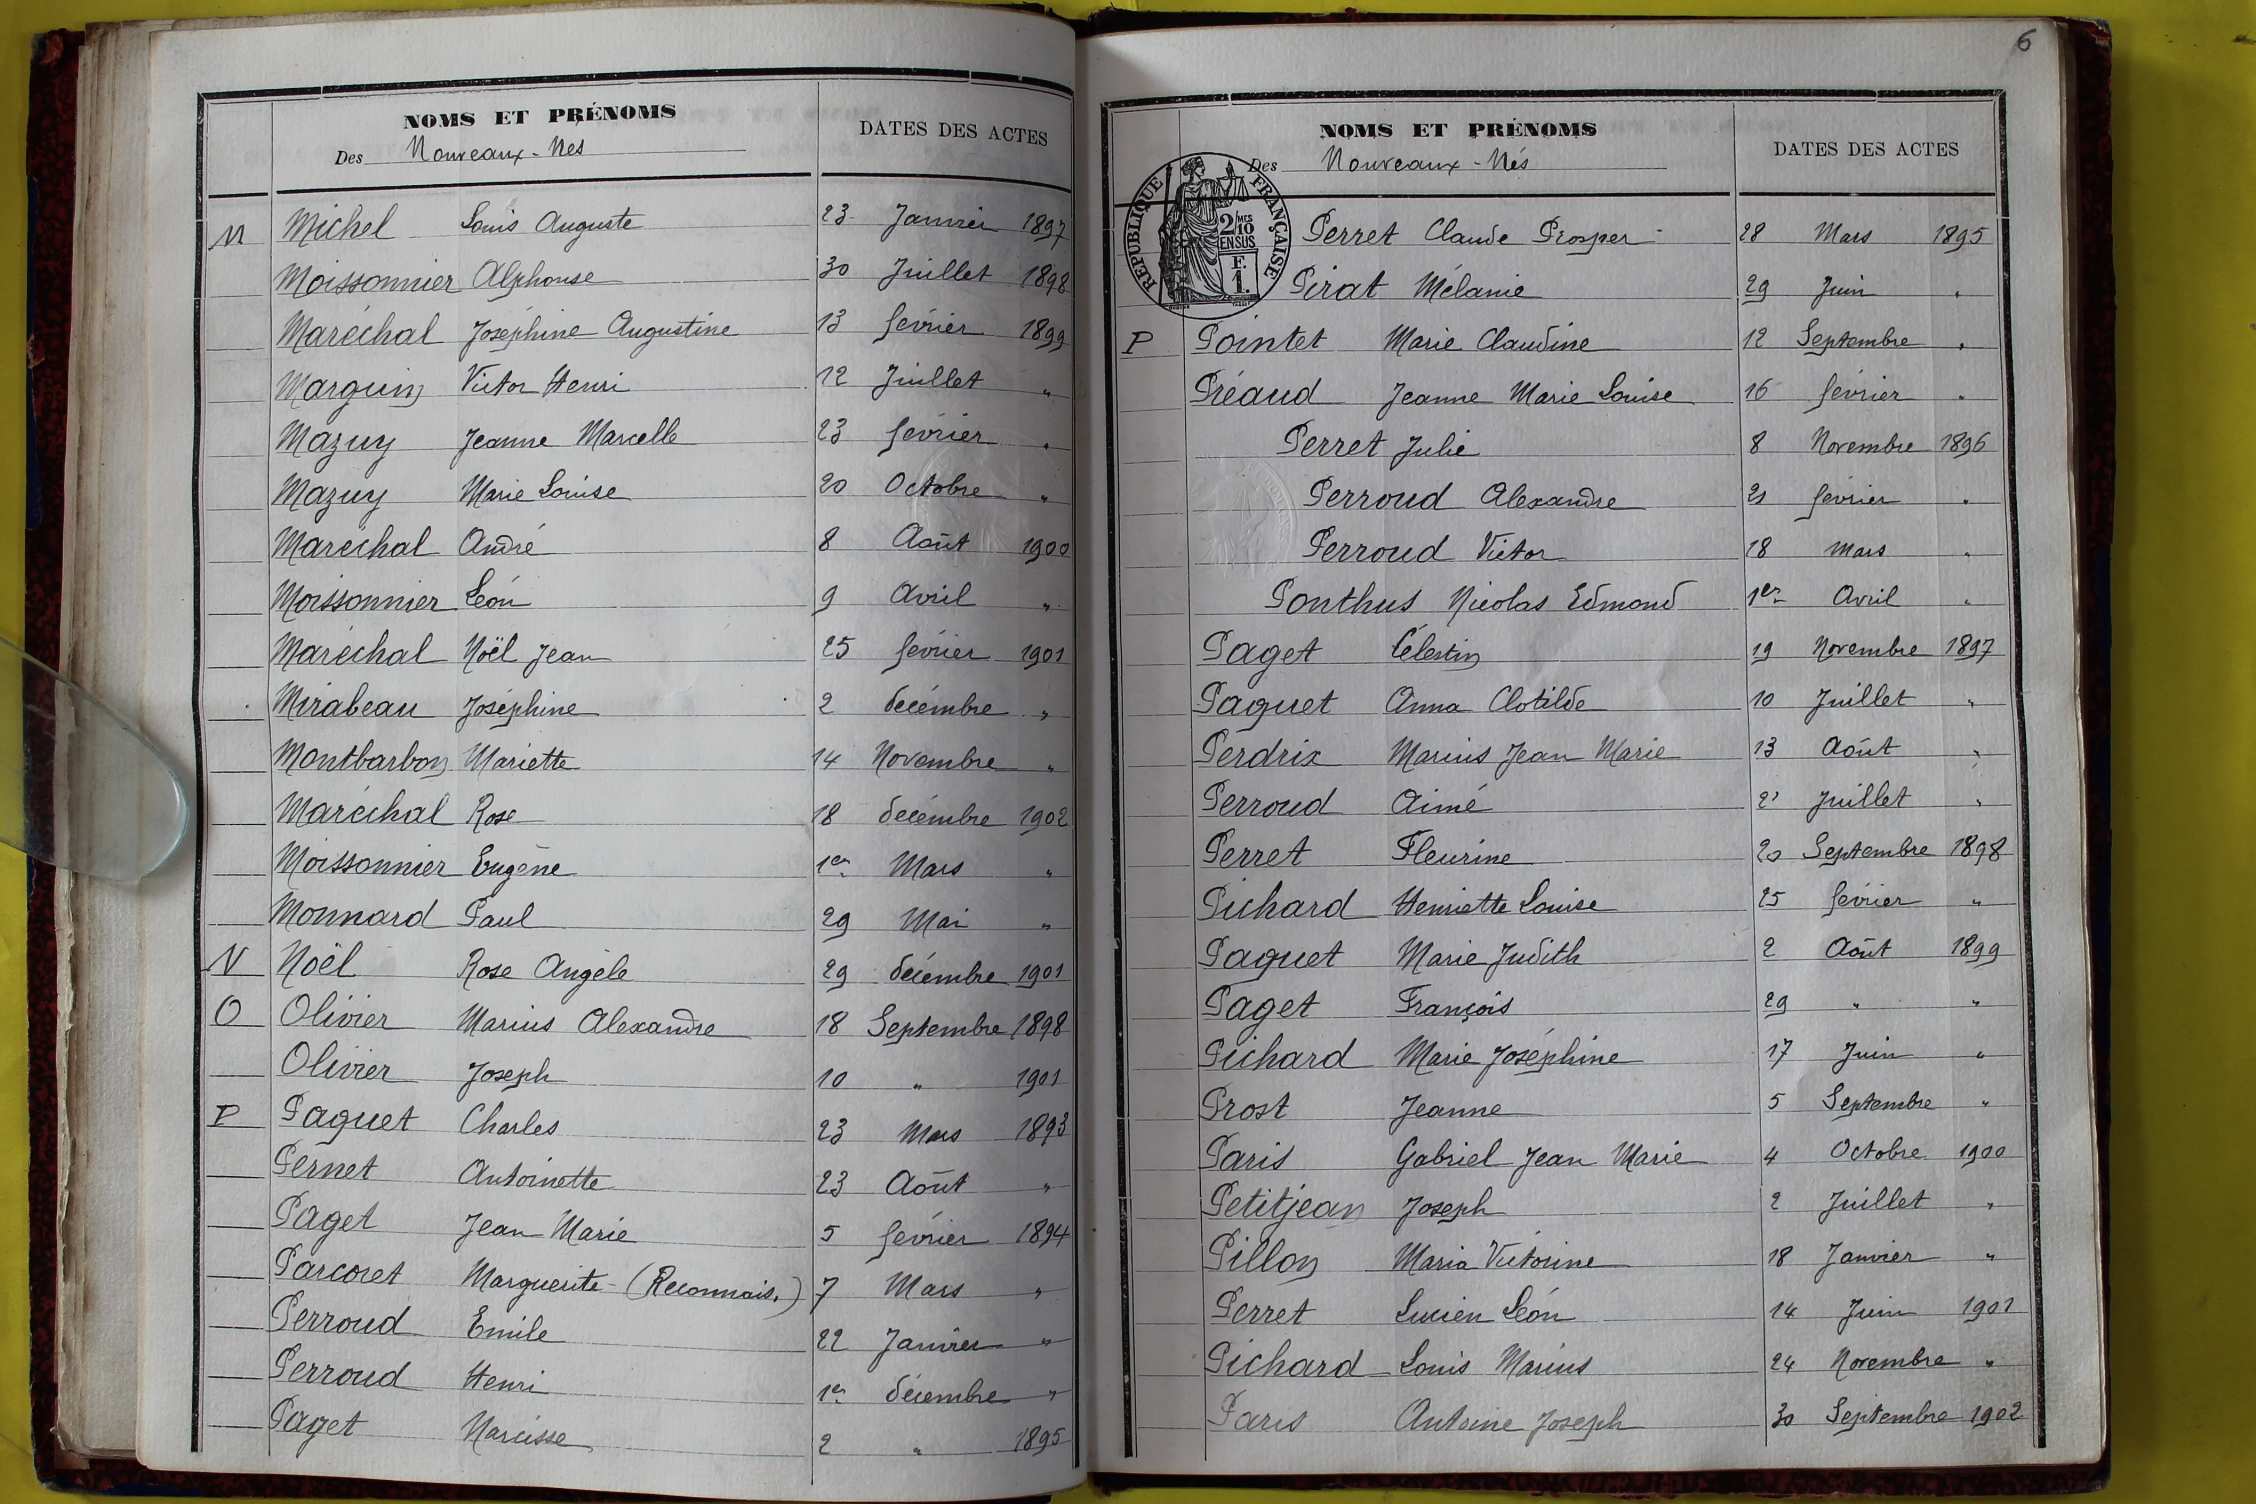 NOMS ET PRÉNOMS
Des Nouveaux-Nés
DATES DES ACTES
M Michel Louis Auguste 23 Janvier 1897
Moissonnier Alphonse 30 Juillet 1898
Maréchal Joséphine Augustine 13 février 1899
Marguin Victor Henri 12 Juillet "
Mazuy Jeanne Marcelle 23 février "
Mazuy Marie Louise 20 Octobre "
Maréchal André 8 Août 1900
Moissonnier Léon 9 Avril "
Maréchal Noël Jean 25 février 1901
Mirabeau Joséphine 2 décembre "
Montbarbon Mariette 14 Novembre "
Maréchal Rose 18 décembre 1902
Moissonnier Eugène 1er Mars "
Monnard Paul 29 Mai "
N Noël Rose Angèle 29 décembre 1901
O Olivier Marius Alexandre 18 Septembre 1898
Olivier Joseph 10 " 1901
P Paquet Charles 23 Mars 1893
Pernet Antoinette 23 Août "
Paget Jean Marie 5 février 1894
Parcoret Marguerite (Reconnais.) 7 Mars "
Perroud Emile 22 Janvier "
Perroud Henri 1er décembre "
Paget Narcisse 2 " 1895
6
NOMS ET PRÉNOMS
Des Nouveaux-Nés
DATES DES ACTES
RÉPUBLIQUE FRANÇAISE
2/10 MES
EN SUS
F.
1.
Perret Claude Prosper 28 Mars 1895
Pirat Mélanie 29 Juin "
P Pointet Marie Claudine 12 Septembre "
Préaud Jeanne Marie Louise 16 février "
Perret Julie 8 Novembre 1896
Perroud Alexandre 21 février "
Perroud Victor 18 mars "
Ponthus Nicolas Edmond 1er Avril "
Paget Célestin 19 Novembre 1897
Paquet Anna Clotilde 10 Juillet "
Perdrix Marius Jean Marie 13 Août "
Perroud Aimé 21 Juillet "
Perret Fleurine 20 Septembre 1898
Pichard Henriette Louise 25 février "
Paquet Marie Judith 2 Août 1899
Paget François 29 " "
Pichard Marie Joséphine 17 Juin "
Prost Jeanne 5 Septembre "
Paris Gabriel Jean Marie 4 Octobre 1900
Petitjean Joseph 2 Juillet "
Pillon Maria Victorine 18 Janvier "
Perret Lucien Léon 14 Juin 1901
Pichard Louis Marius 24 Novembre "
Paris Antoine Joseph 30 Septembre 1902